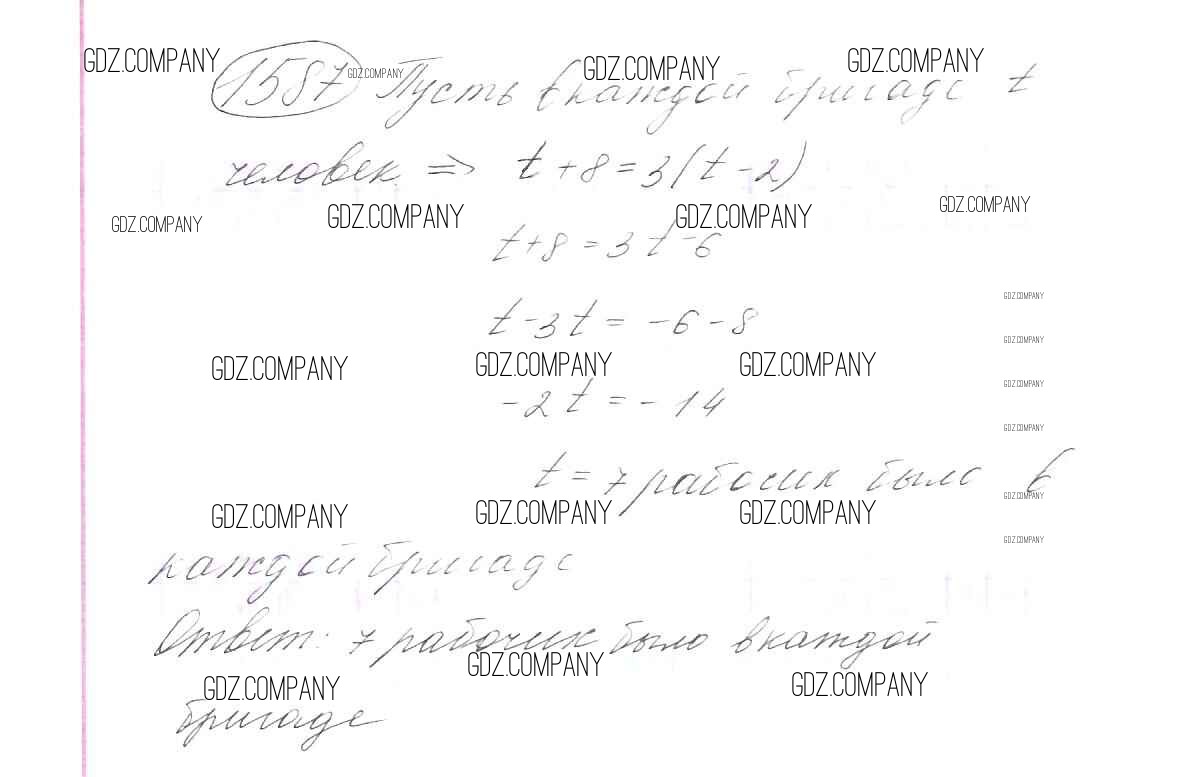 GDZ.COMPANY GDZ.COMPANY GDZ.COMPANY GDZ.COMPANY
1587 Пусть в каждой бригаде t
человек => t + 8 = 3(t - 2)
GDZ.COMPANY GDZ.COMPANY GDZ.COMPANY GDZ.COMPANY
t + 8 = 3t - 6
GDZ.COMPANY
t - 3t = -6 - 8
GDZ.COMPANY
GDZ.COMPANY GDZ.COMPANY GDZ.COMPANY GDZ.COMPANY
-2t = -14
GDZ.COMPANY
t = 7 рабочих было в
GDZ.COMPANY
GDZ.COMPANY GDZ.COMPANY GDZ.COMPANY
GDZ.COMPANY
каждой бригаде
Ответ: 7 рабочих было в каждой
GDZ.COMPANY GDZ.COMPANY GDZ.COMPANY
бригаде